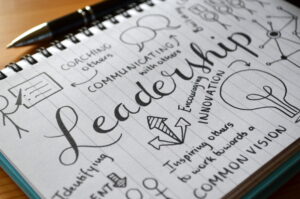 COACHING
others
COMMUNICATING
with others
Leadership
Encouraging
INNOVATION
Identifying
Inspiring others
to work towards a
COMMON VISION